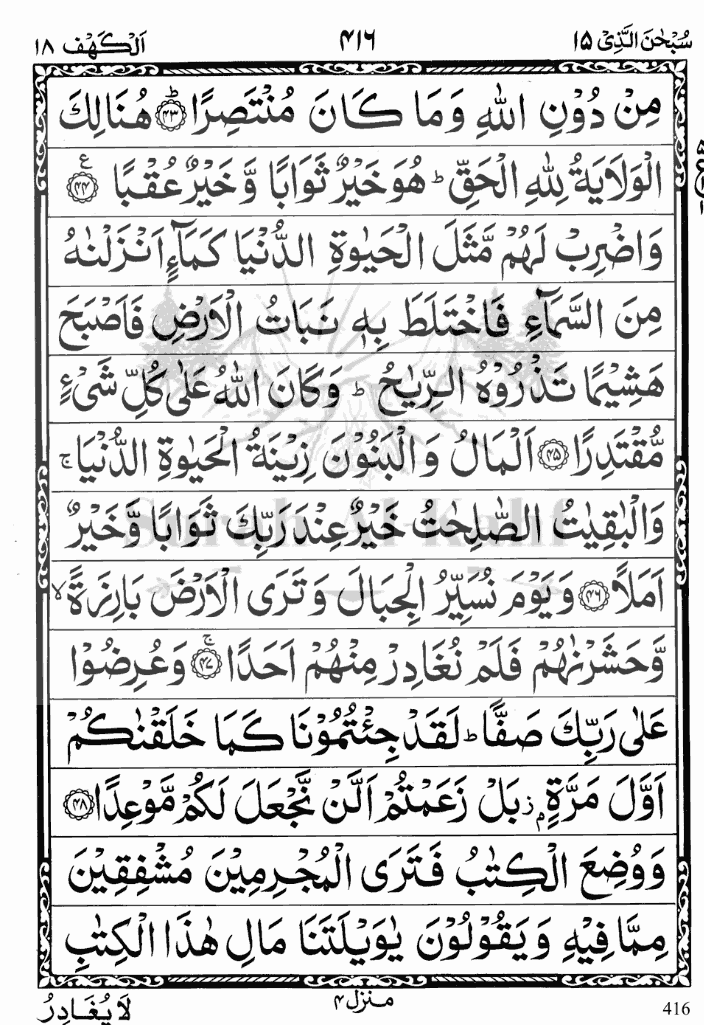 سُبْحٰنَ الَّذِیْۤ ۱۵
۴۱۶
اَلْكَهْف ۱۸
مِنْ دُوْنِ اللّٰهِ وَمَا كَانَ مُنْتَصِرًا ؕ﴿۴۳﴾ هُنَالِكَ
الْوَلَايَةُ لِلّٰهِ الْحَقِّ ؕ هُوَ خَيْرٌ ثَوَابًا وَّخَيْرٌ عُقْبًا ﴿۴۴﴾ ع
وَاضْرِبْ لَهُمْ مَّثَلَ الْحَيٰوةِ الدُّنْيَا كَمَآءٍ اَنْزَلْنٰهُ
مِنَ السَّمَآءِ فَاخْتَلَطَ بِهٖ نَبَاتُ الْاَرْضِ فَاَصْبَحَ
هَشِيْمًا تَذْرُوْهُ الرِّيٰحُ ؕ وَكَانَ اللّٰهُ عَلٰى كُلِّ شَیْءٍ
مُّقْتَدِرًا ﴿۴۵﴾ اَلْمَالُ وَالْبَنُوْنَ زِيْنَةُ الْحَيٰوةِ الدُّنْيَا ۚ
وَالْبٰقِيٰتُ الصّٰلِحٰتُ خَيْرٌ عِنْدَ رَبِّكَ ثَوَابًا وَّخَيْرٌ
اَمَلًا ﴿۴۶﴾ وَيَوْمَ نُسَيِّرُ الْجِبَالَ وَتَرَى الْاَرْضَ بَارِزَةً ۙ
وَّحَشَرْنٰهُمْ فَلَمْ نُغَادِرْ مِنْهُمْ اَحَدًا ۚ﴿۴۷﴾ وَعُرِضُوْا
عَلٰى رَبِّكَ صَفًّا ؕ لَقَدْ جِئْتُمُوْنَا كَمَا خَلَقْنٰكُمْ
اَوَّلَ مَرَّةٍۭ ؗ بَلْ زَعَمْتُمْ اَلَّنْ نَّجْعَلَ لَكُمْ مَّوْعِدًا ﴿۴۸﴾
وَوُضِعَ الْكِتٰبُ فَتَرَى الْمُجْرِمِيْنَ مُشْفِقِيْنَ
مِمَّا فِيْهِ وَيَقُوْلُوْنَ يٰوَيْلَتَنَا مَالِ هٰذَا الْكِتٰبِ
منزل ۴
لَا يُغَادِرُ
416